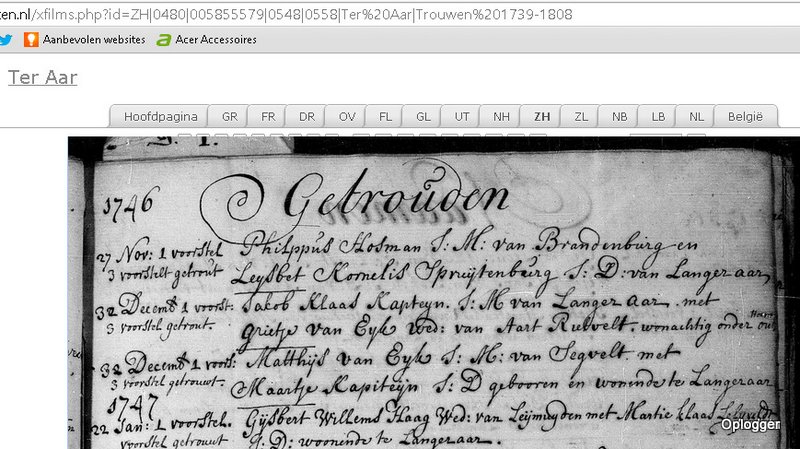 en.nl/xfilms.php?id=ZH|0480|005855579|0548|0558|Ter%20Aar|Trouwen%201739-1808
Aanbevolen websites Acer Accessoires
Ter Aar
Hoofdpagina GR FR DR OV FL GL UT NH ZH ZL NB LB NL België
1746 Getrouden
27 Nov: 1 voorstel Philppus Hosman J: M: van Brandenburg en
3 voorstelt getrout Leysbet Kornelis Spruijtenburg J: D: van Langer aar
32 Decemb 1 voorst: Jakob Klaas Kapteyn. J: M van Langer aar. met
3 voorstel getrout. Grietje van Eyk Wed: van Aart Ruwelt, wonachtig onder
32 Decemb 1 voors: Matthijs van Eyk J: M: van Segvelt. met
3 voorstel getrouwt. Maartje Kapiteijn J: D gebooren en wonende te Langeraar
1747
22 Jan: 1 voorstel. Gijsbert Willems Haag Wed: van Leijmuyden met Martie klaas
voorstel getrouwt J: D: woonende te Langeraar.
Oplogger